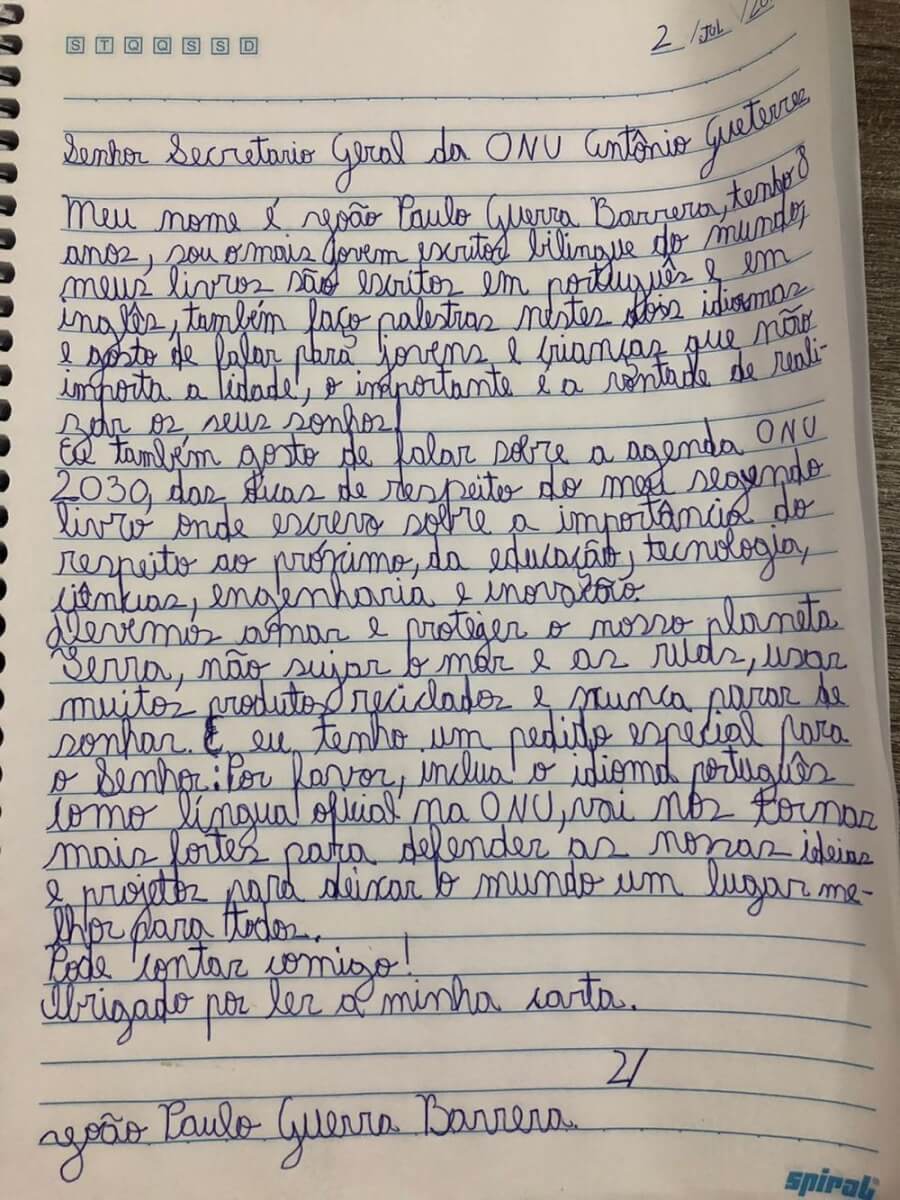 S T Q Q S S D
2 / JUL / 20
Senhor Secretario Geral da ONU Antônio Gueterres
Meu nome é João Paulo Guerra Barrera, tenho 8
anos, sou o mais jovem escritor bilingue do mundo,
meus livros são escritos em português e em
inglês, também faço palestras nestes dois idiomas
e gosto de falar para jovens e crianças que não
importa a idade, o importante é a vontade de reali-
zar os seus sonhos!
Eu também gosto de falar sobre a agenda ONU
2030, das ruas de respeito do meu segundo
livro onde escrevo sobre a importância do
respeito ao próximo, da educação, tecnologia,
ciências, engenharia e inovação.
Devemos amar e proteger o nosso planeta
Terra, não sujar o mar e as ruas, usar
muitos produtos reciclados e nunca parar de
sonhar. E eu tenho um pedido especial para
o Senhor: Por favor, inclua o idioma português
como língua oficial na ONU, vai nos tornar
mais fortes para defender as nossas ideias
e projetos para deixar o mundo um lugar me-
lhor para todos.
Pode contar comigo!
Obrigado por ler a minha carta.
2/
João Paulo Guerra Barrera.
spiral